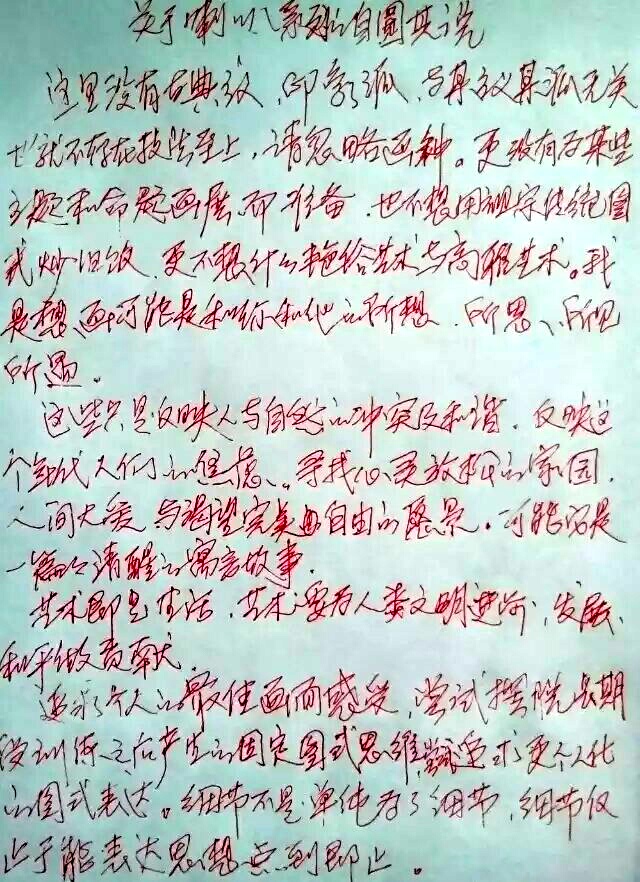 关于喇叭系列的自圆其说
这里没有古典派、印象派，与某主义某派无关
也就不存在技法至上，请忽略画种。更没有为某些
主题和命题画展而准备，也不想用祖宗传统图
式炒旧饭，更不想什么艳俗艺术与高雅艺术。我
是想画可能是和你和他的所想、所思、所见
所遇。
这些只是反映人与自然的冲突及和谐，反映这
个时代人们的焦虑。寻找心灵放松的家园，
人间大爱与渴望完美与自由的愿景。可能都是
一篇篇清醒的寓言故事。
艺术即是生活，艺术要为人类文明进步、发展、
和平做贡献。
追求个人的最佳画面感受，尝试摆脱长期
受训练之后产生的固定图式思维，尝试追求更个人化
的图式表达。细节不是单纯为了细节，细节仅
止于能表达思想点到即止。